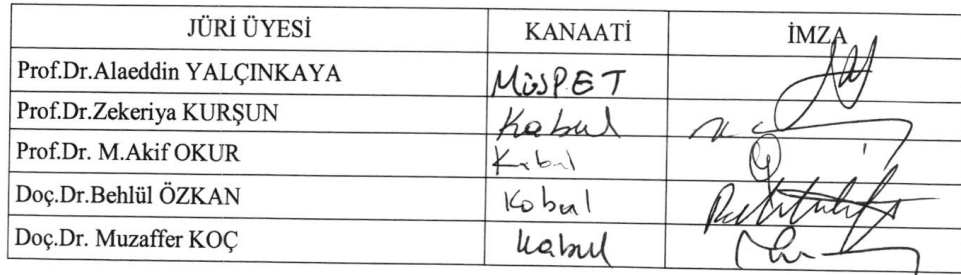 JÜRİ ÜYESİ KANAATİ İMZA
Prof.Dr.Alaeddin YALÇINKAYA MÜSPET
Prof.Dr.Zekeriya KURŞUN Kabul
Prof.Dr. M.Akif OKUR Kabul
Doç.Dr.Behlül ÖZKAN Kabul
Doç.Dr. Muzaffer KOÇ Kabul